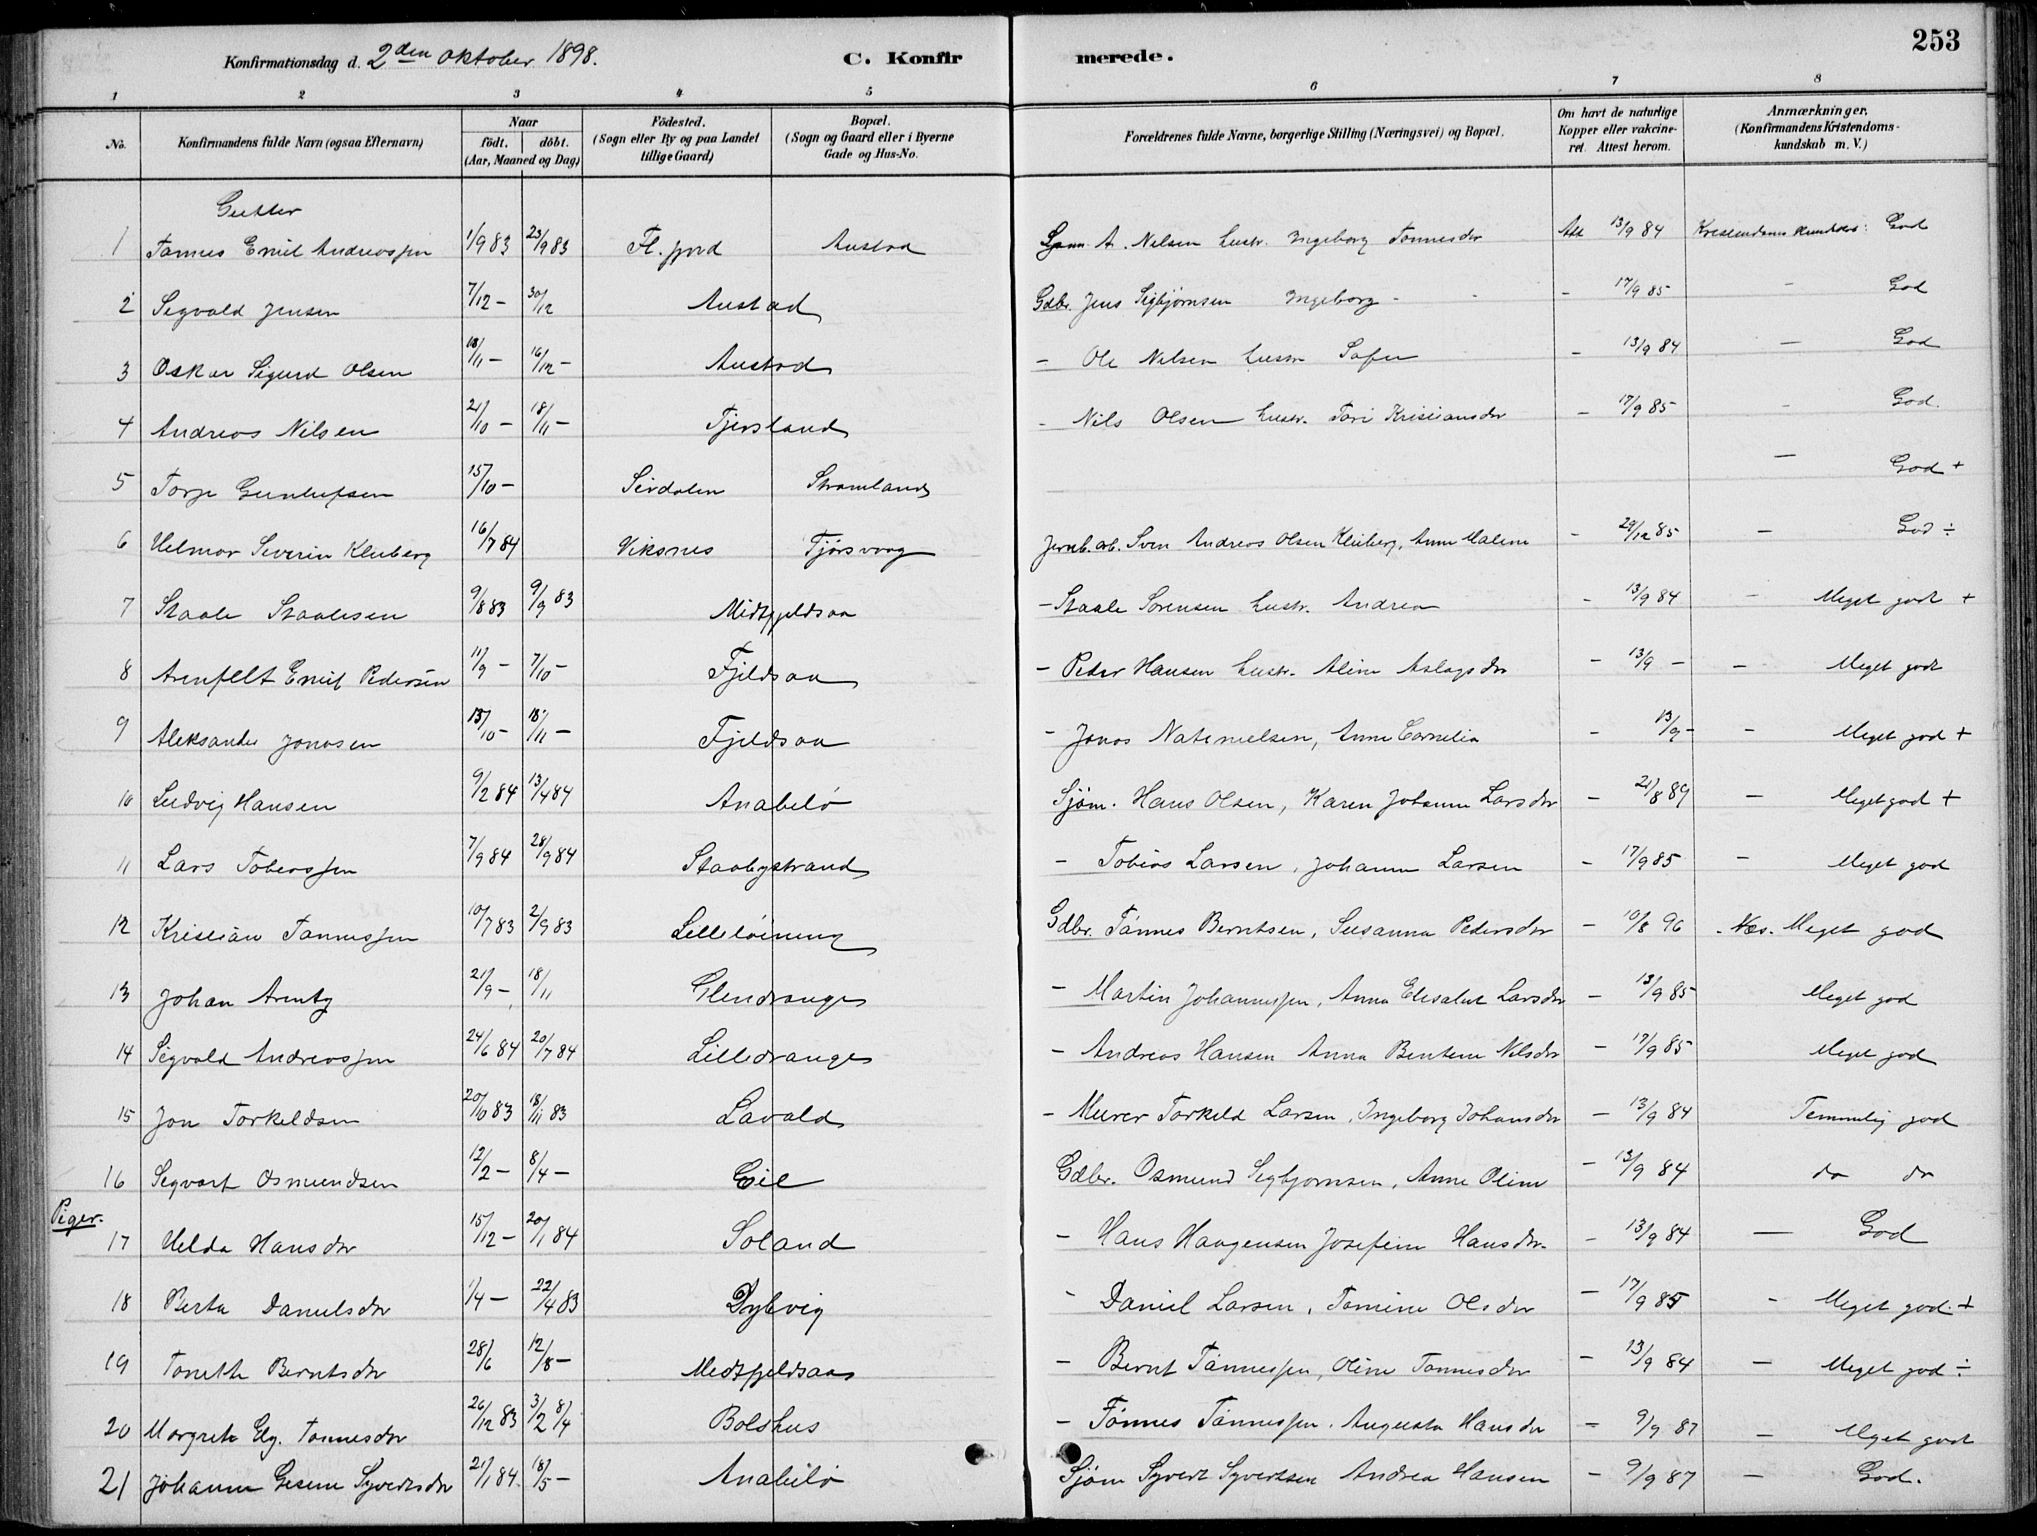 253
Konfirmationsdag d. 2den Oktober 1898. C. Konfirmerede.
1 2 3 4 5 6 7 8
No. Konfirmandens fulde Navn (ogsaa Efternavn) Naar födt. döbt. (Aar, Maaned og Dag) Födested. (Sogn eller By og paa Landet tillige Gaard) Bopæl. (Sogn og Gaard eller i Byerne Gade og Hus-No. Forældrenes fulde Navne, borgerlige Stilling (Næringsvei) og Bopæl. Om havt de naturlige Kopper eller vakcineret. Attest herom. Anmærkninger, (Konfirmandens Kristendomskundskab m. V.)
Gutter
1 Tønnes Emil Andreassen 1/9 83 23/9 83 Fl.fjord Austad A. Nilsen hustr. Ingeborg Tønnesdr Att 13/9 84 God
2 Sigvald Jensen 7/12 - 30/12 Austad Gdbr. Jens Sigbjørnsen Ingeborg - - 17/9 85 - God
3 Oskar Sigurd Olsen 18/11 - 16/12 - Austad - Ole Nilsen hustr. Sofie - 13/9 84 - God
4 Andreas Nilsen 21/10 - 18/11 - Tjersland - Nils Olsen hustr. Tori Kristiansdr - 17/9 85 - God.
5 Torje Gunlufsen 15/10 - Sirdalen Stramland - God +
6 Helmar Severin Kleiberg 16/7 84 Viksnes Tjørsvaag Jernb.arb. Sven Andreas Olsen Kleiberg, Anne Malene - 29/12 85 - God ÷
7 Staale Staalesen 9/8 83 9/9 83 Midtfjeldsaa - Staale Sørensen hustr. Andrea - 13/9 84 - Meget godt +
8 Arenfelt Emil Pedersen 11/9 - 7/10 - Fjeldsaa - Peder Hansen hustr. Aline Aslagsdr - 13/9 - - Meget godt
9 Aleksander Jonasen 13/10 - 18/11 - Fjeldsaa - Jonas Natanielsen, Anne Cornelia - 13/9 - - Meget god +
10 Ludvig Hansen 9/2 84 13/4 84 Anabelø Sjøm. Hans Olsen, Karen Johanne Larsdr - 21/8 89 - Meget god +
11 Lars Tobiassen 7/9 84 28/9 84 Staalystrand - Tobias Larsen, Johanne Larsen - 17/9 85 - Meget god
12 Kristian Tønnessen 10/7 83 2/9 83 Lilleløining Gdbr. Tønnes Berntsen, Susanna Pedersdr - 10/8 96 . Næs. Meget god
13 Johan Arentz 21/9 - 18/11 Glendrange - Martin Johannessen, Anna Elisabet Larsdr - 13/9 85 Meget god
14 Sigvald Andreassen 24/6 84 20/7 84 Lilledrange - Andreas Hansen Anna Bentine Nilsdr - 17/9 85 Meget god
15 Jon Torkeldsen 20/10 83 18/11 83 Lavold - Murer Torkeld Larsen, Ingeborg Johansdr - 13/9 84 Temmelig god
16 Sigvart Osmundsen 12/2 - 8/4 - Eie Gdbr. Osmund Sigbjørnsen, Anne Oline - 13/9 84 do do
Piger.
17 Helda Hansdr 15/12 - 20/1 84 Soland - Hans Haagensen Josefine Hansdr. - 13/9 84 - God
18 Berta Danielsdr 1/4 - 22/4 83 Dybvig - Daniel Larsen, Tomine Olsdr - 17/9 85 - Meget god. +
19 Tonette Berntsdr 28/6 12/8 - Midtfjeldsaa - Bernt Tønnessen, Oline Tønnesdr - 13/9 84 - Meget god ÷
20 Margrete Elg. Tønnesdr 26/12 83 3/2 84 Bolshus - Tønnes Tønnessen. Augusta Hansdr - 9/9 87 - Meget godt
21 Johanne Gesine Syvertsdr 21/1 84. 18/5 - Anabelø Sjøm Syvert Syvertsen Andrea Hansen - 9/9 87 - God.